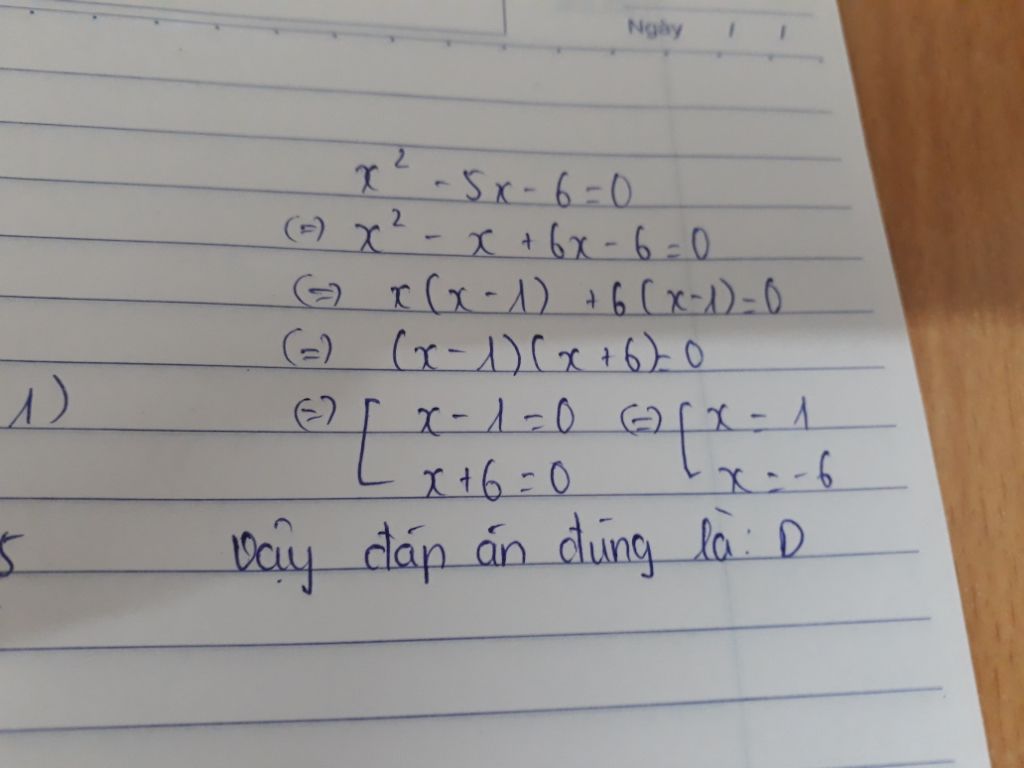 Ngày / /
x² - 5x - 6 = 0
(=) x² - x + 6x - 6 = 0
(=) x(x - 1) + 6(x - 1) = 0
(=) (x - 1)(x + 6) = 0
1) (=) [ x - 1 = 0 (=) [ x = 1
x + 6 = 0 x = -6
5 Vậy đáp án đúng là: D